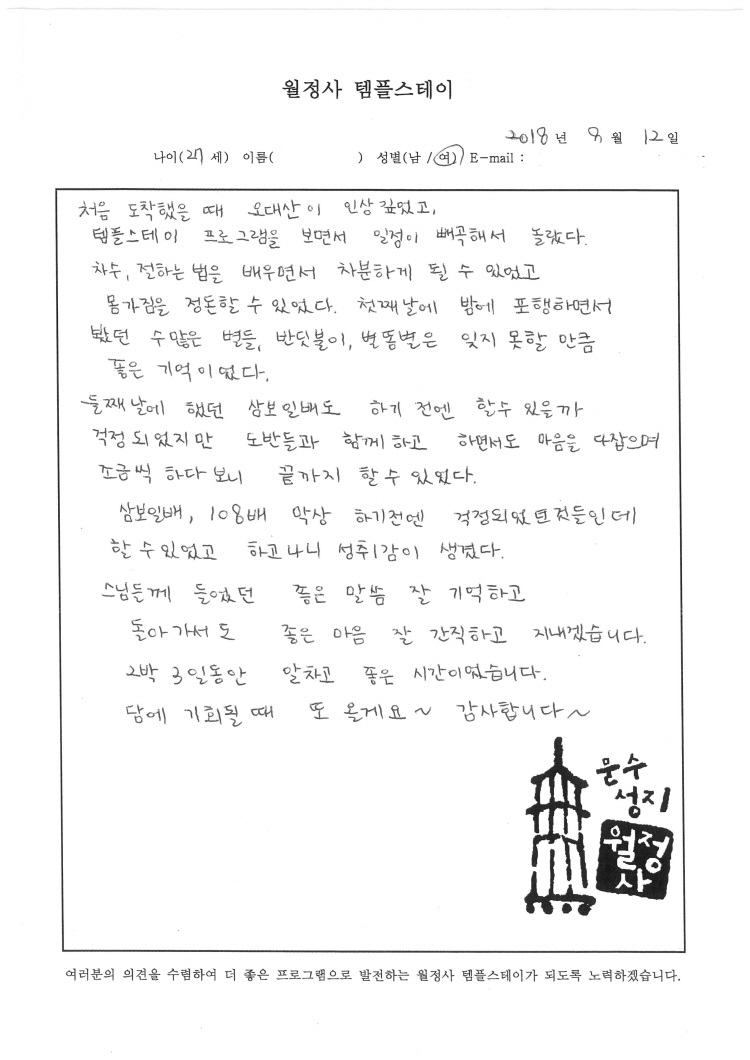 월정사 템플스테이
2018 년 8 월 12 일
나이(27 세) 이름( ) 성별(남 / 여) E-mail :
처음 도착했을 때 오대산이 인상 깊었고,
템플스테이 프로그램을 보면서 일정이 빼곡해서 놀랐다.
차수, 절하는 법을 배우면서 차분하게 될 수 있었고
몸가짐을 정돈할 수 있었다. 첫째날에 밤에 포행하면서
봤던 수많은 별들, 반딧불이, 별똥별은 잊지 못할 만큼
좋은 기억이었다.
둘째날에 했던 삼보일배도 하기 전엔 할수 있을까
걱정되었지만 도반들과 함께하고 하면서도 마음을 다잡으며
조금씩 하다보니 끝까지 할 수 있었다.
삼보일배, 108배 막상 하기전엔 걱정되었던것들인데
할 수 있었고 하고나니 성취감이 생겼다.
스님들께 들었던 좋은 말씀 잘 기억하고
돌아가서도 좋은 마음 잘 간직하고 지내겠습니다.
2박 3일동안 알차고 좋은 시간이었습니다.
담에 기회될 때 또 올게요~ 감사합니다~
문수
성지
월정
사
여러분의 의견을 수렴하여 더 좋은 프로그램으로 발전하는 월정사 템플스테이가 되도록 노력하겠습니다.